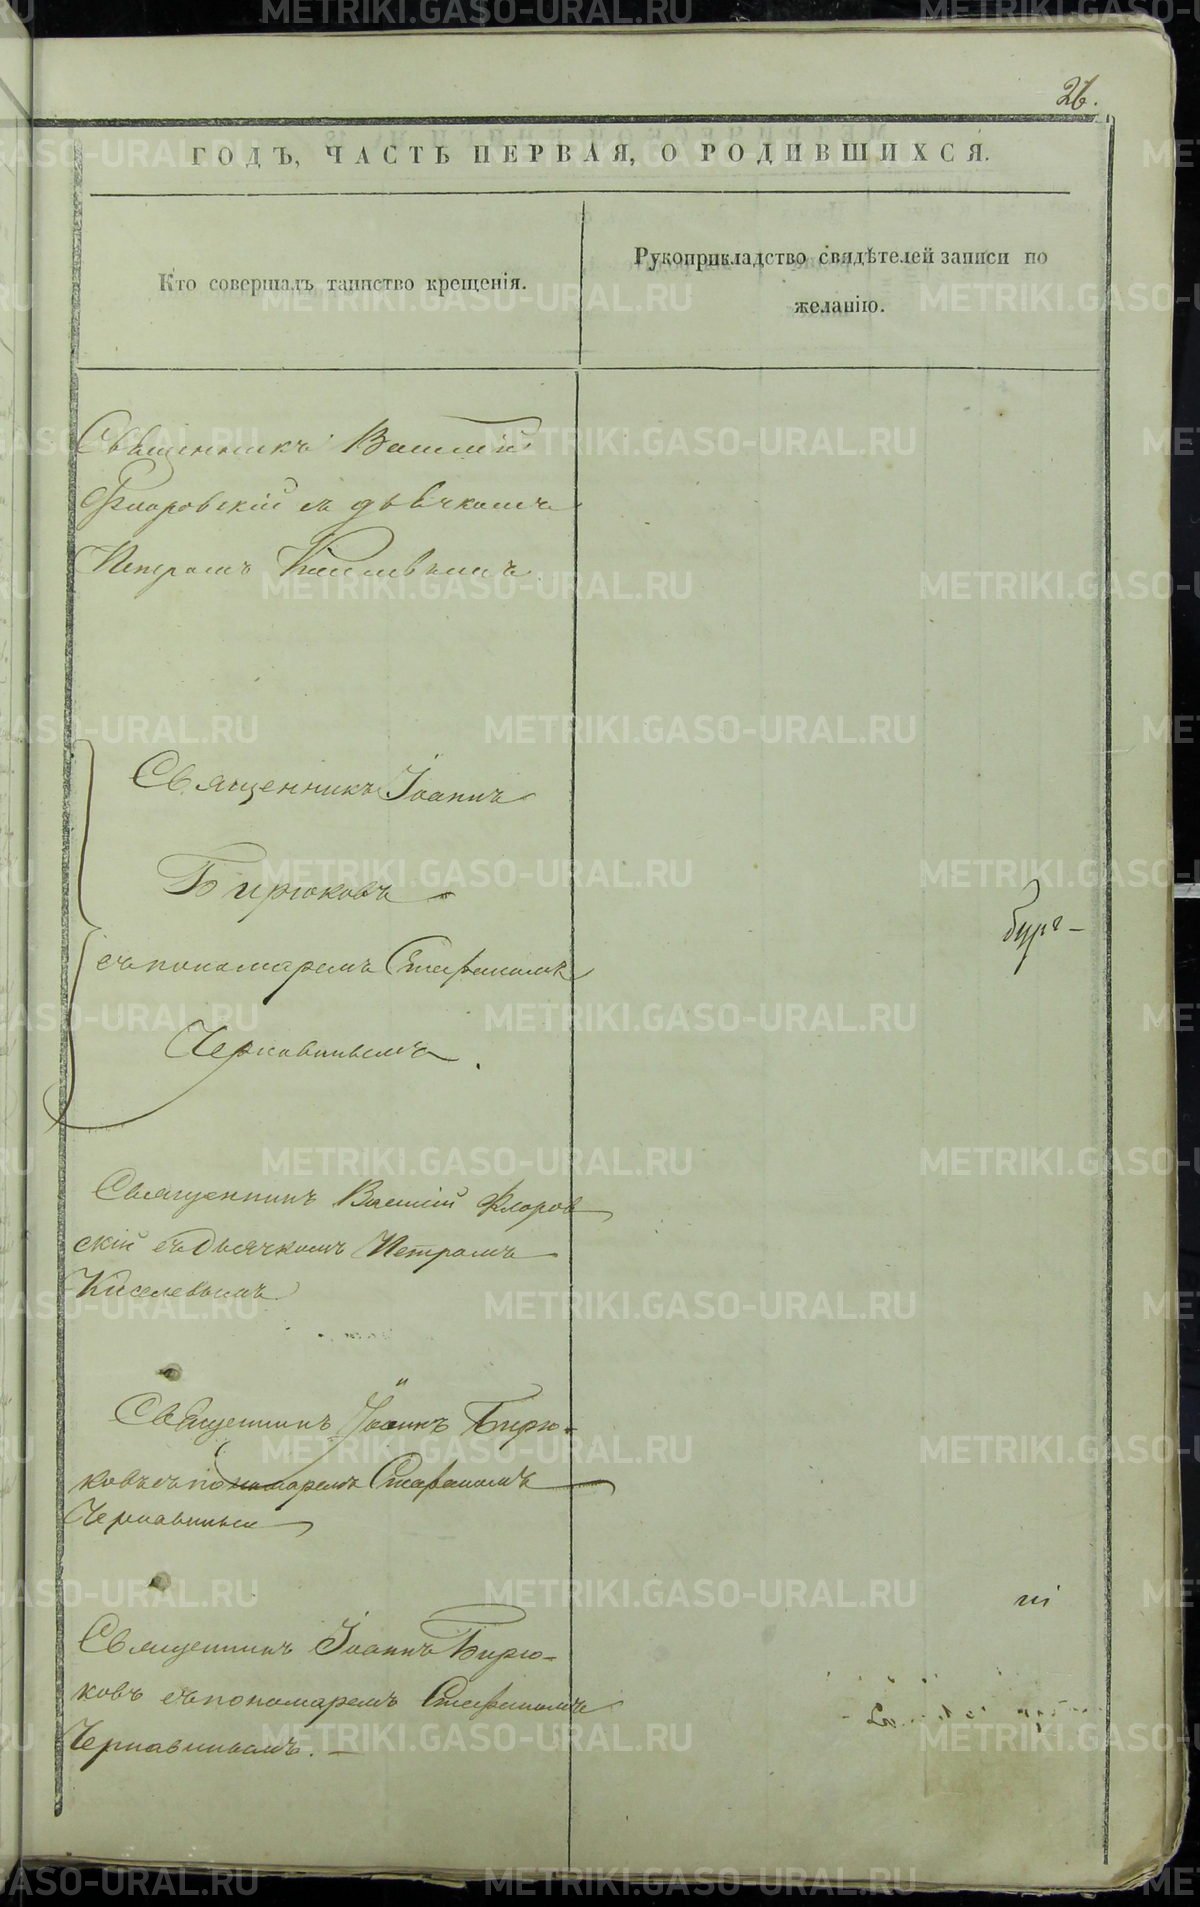 26.
ГОДЪ, ЧАСТЬ ПЕРВАЯ, О РОДИВШИХСЯ.
Кто совершалъ таинство крещенія.
Рукоприкладство свидѣтелей записи по
желанію.
Священникъ Василій
Флоровскій съ дьячкомъ
Петромъ Киселевымъ
Священникъ Іоаннъ
Бирюковъ
съ пономаремъ Стефаномъ
Чернавинымъ.
Священникъ Василій Флоров
скій съ дьячкомъ Петромъ
Киселевымъ
Священникъ Іоаннъ Бирю-
ковъ съ пономаремъ Стефаномъ
Чернавинымъ
Священникъ Іоаннъ Бирю-
ковъ съ пономаремъ Стефаномъ
Чернавинымъ. –
METRIKI.GASO-URAL.RU